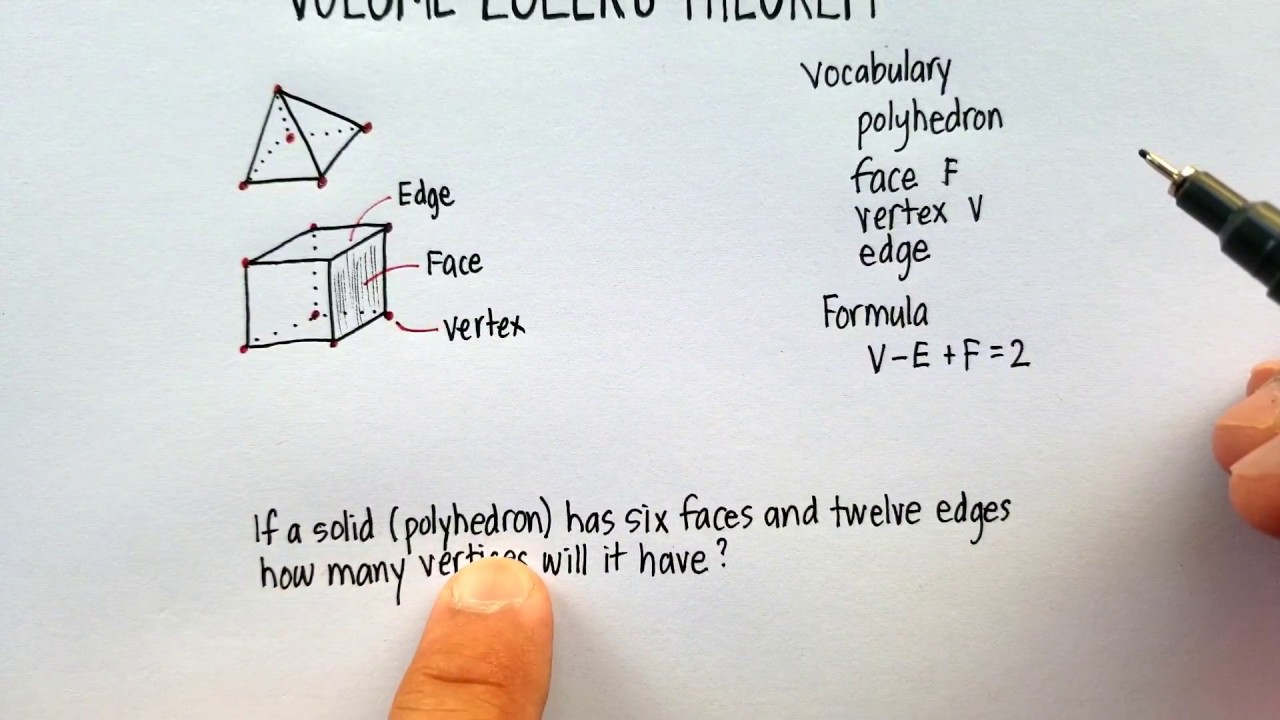 VOLUME EULER'S THEOREM
Edge
Face
vertex
Vocabulary
polyhedron
face F
vertex V
edge
Formula
V-E+F=2
If a solid (polyhedron) has six faces and twelve edges
how many vertices will it have?